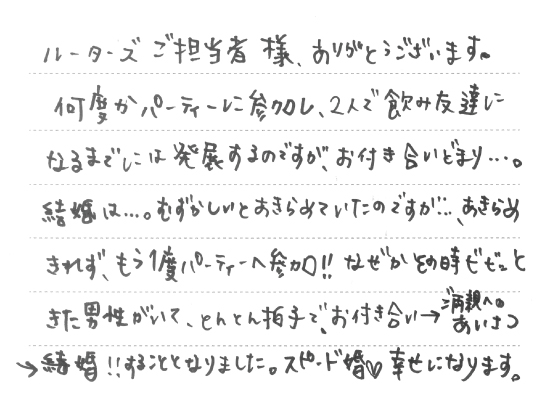 ルーターズ ご担当者 様、ありがとうございます。
何度かパーティーに参加し、2人で飲み友達に
なるまでには発展するのですが、お付き合いどまり…。
結婚は…。むずかしいとあきらめていたのですが…、あきらめ
きれず、もう1度パーティーへ参加!! なぜかその時ビビッと
きた男性がいて、とんとん拍子で、お付き合い→ご両親への
あいさつ
→結婚!!することとなりました。スピード婚♡幸せになります。